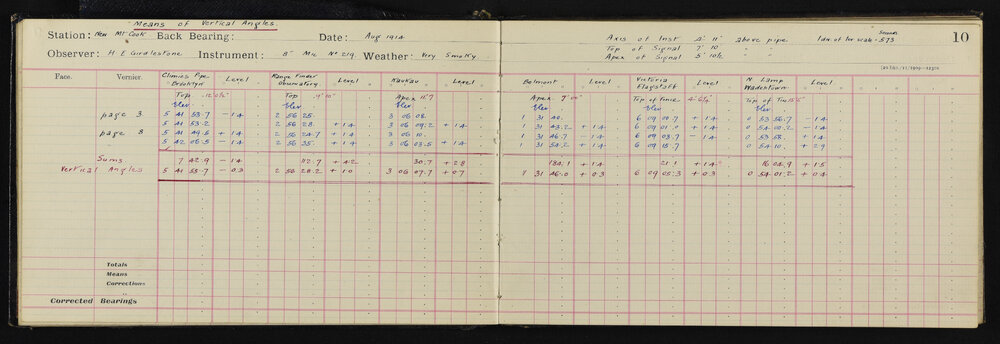 Means of Vertical Angles.
Station: New Mt Cook Back Bearing: Date: Aug 1914
Axis of Inst 4' 11" above pipe. 1 div of lev scale = 5.73 Seconds
10
Observer: H E Girdlestone Instrument: 5" Mic No 219 Weather: Very Smoky
Top of Signal 7' 10" "
Apex of Signal 5' 10½ " "
Face. Vernier. Climies Pipe Brooklyn Level Range Finder Observatory Level Kaukau Level Belmont Level Victoria Flagstaff Level N Lamp Wadestown Level
Top 12' 0½" Top 9' 10" Apex 11' 7 Apex 9' 00" Top of Fence 4' 6¼" Top of Tin 15' 5"
Elev. Elev. Elev. Elev. Elev. Elev.
page 3 5 41 53.7 – 1.4 2 56 25. 3 06 08. 1 31 40. 6 09 00.7 + 1.4 0 53 56.7 – 1.4
5 41 53.2 2 56 28. + 1.4 3 06 09.2 + 1.4 1 31 43.2 + 1.4 6 09 01.0 + 1.4 0 54 00.2 – 1.4
page 8 5 41 49.5 + 1.4 2 56 24.7 + 1.4 3 06 10. 1 31 46.7 – 1.4 6 09 03.7 – 1.4 0 53 58. + 1.4
5 42 06.5 – 1.4 2 56 35. + 1.4 3 06 03.5 + 1.4 1 31 54.2 + 1.4 6 09 15.7 0 54 10. + 2.9
Sums 7 42.9 – 1.4 112.7 + 4.2 30.7 + 2.8 184.1 + 1.4 21.1 + 1.4 16 04.9 + 1.5
Vertical Angles 5 41 55.7 – 0.3 2 56 28.2 + 1.0 3 06 07.7 + 0.7 1 31 46.0 + 0.3 6 09 05.3 + 0.3 0 54 01.2 + 0.4
Totals
Means
Corrections
Corrected Bearings